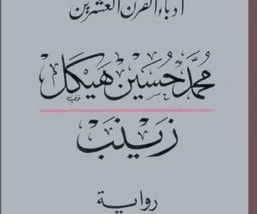 أدباء القرن العشرين
محمد حسين هيكل
زينب
رواية